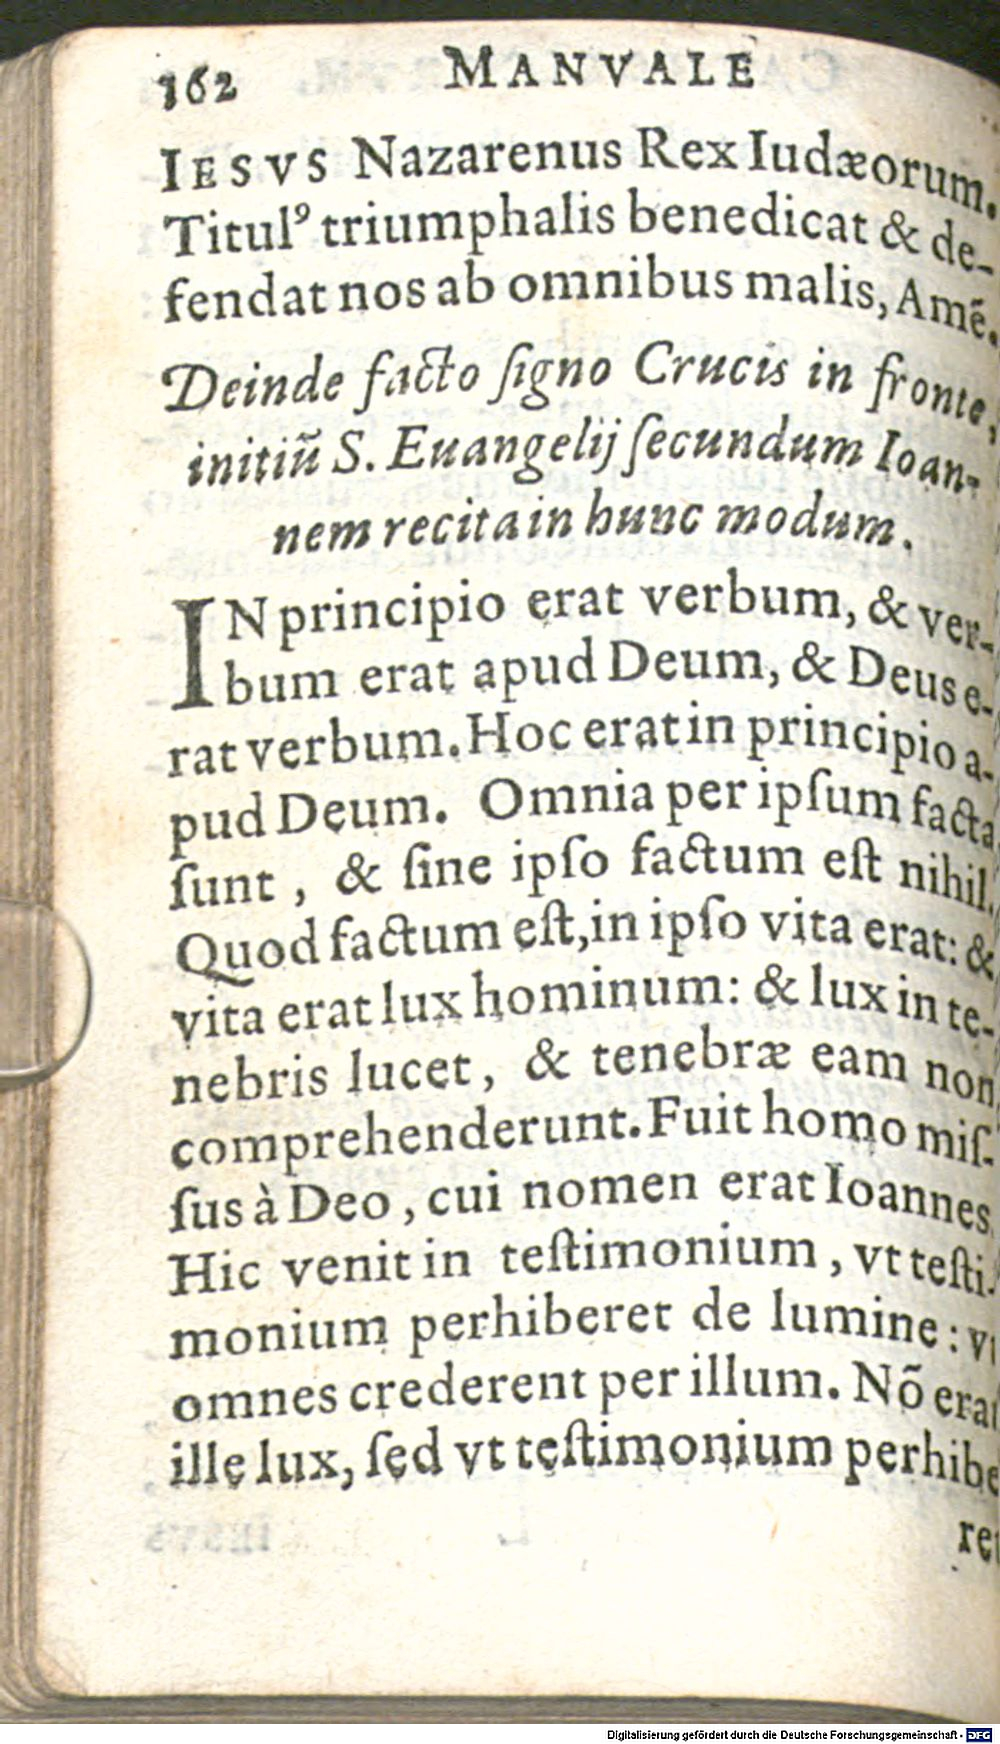 162 MANVALE
IESVS Nazarenus Rex Iudæorum.
Titulꝰ triumphalis benedicat & de-
fendat nos ab omnibus malis, Amē.
Deinde facto ſigno Crucis in fronte,
initiū S. Euangelij ſecundum Ioan-
nem recita in hunc modum.
IN principio erat verbum, & ver-
bum erat apud Deum, & Deus e-
rat verbum. Hoc erat in principio a-
pud Deum. Omnia per ipſum facta
ſunt, & ſine ipſo factum eſt nihil.
Quod factum eſt, in ipſo vita erat: &
vita erat lux hominum: & lux in te-
nebris lucet, & tenebræ eam non
comprehenderunt. Fuit homo miſ-
ſus à Deo, cui nomen erat Ioannes.
Hic venit in teſtimonium, vt teſti-
monium perhiberet de lumine: vt
omnes crederent per illum. Nō erat
ille lux, ſed vt teſtimonium perhibe
ret
Digitalisierung gefördert durch die Deutsche Forschungsgemeinschaft - DFG